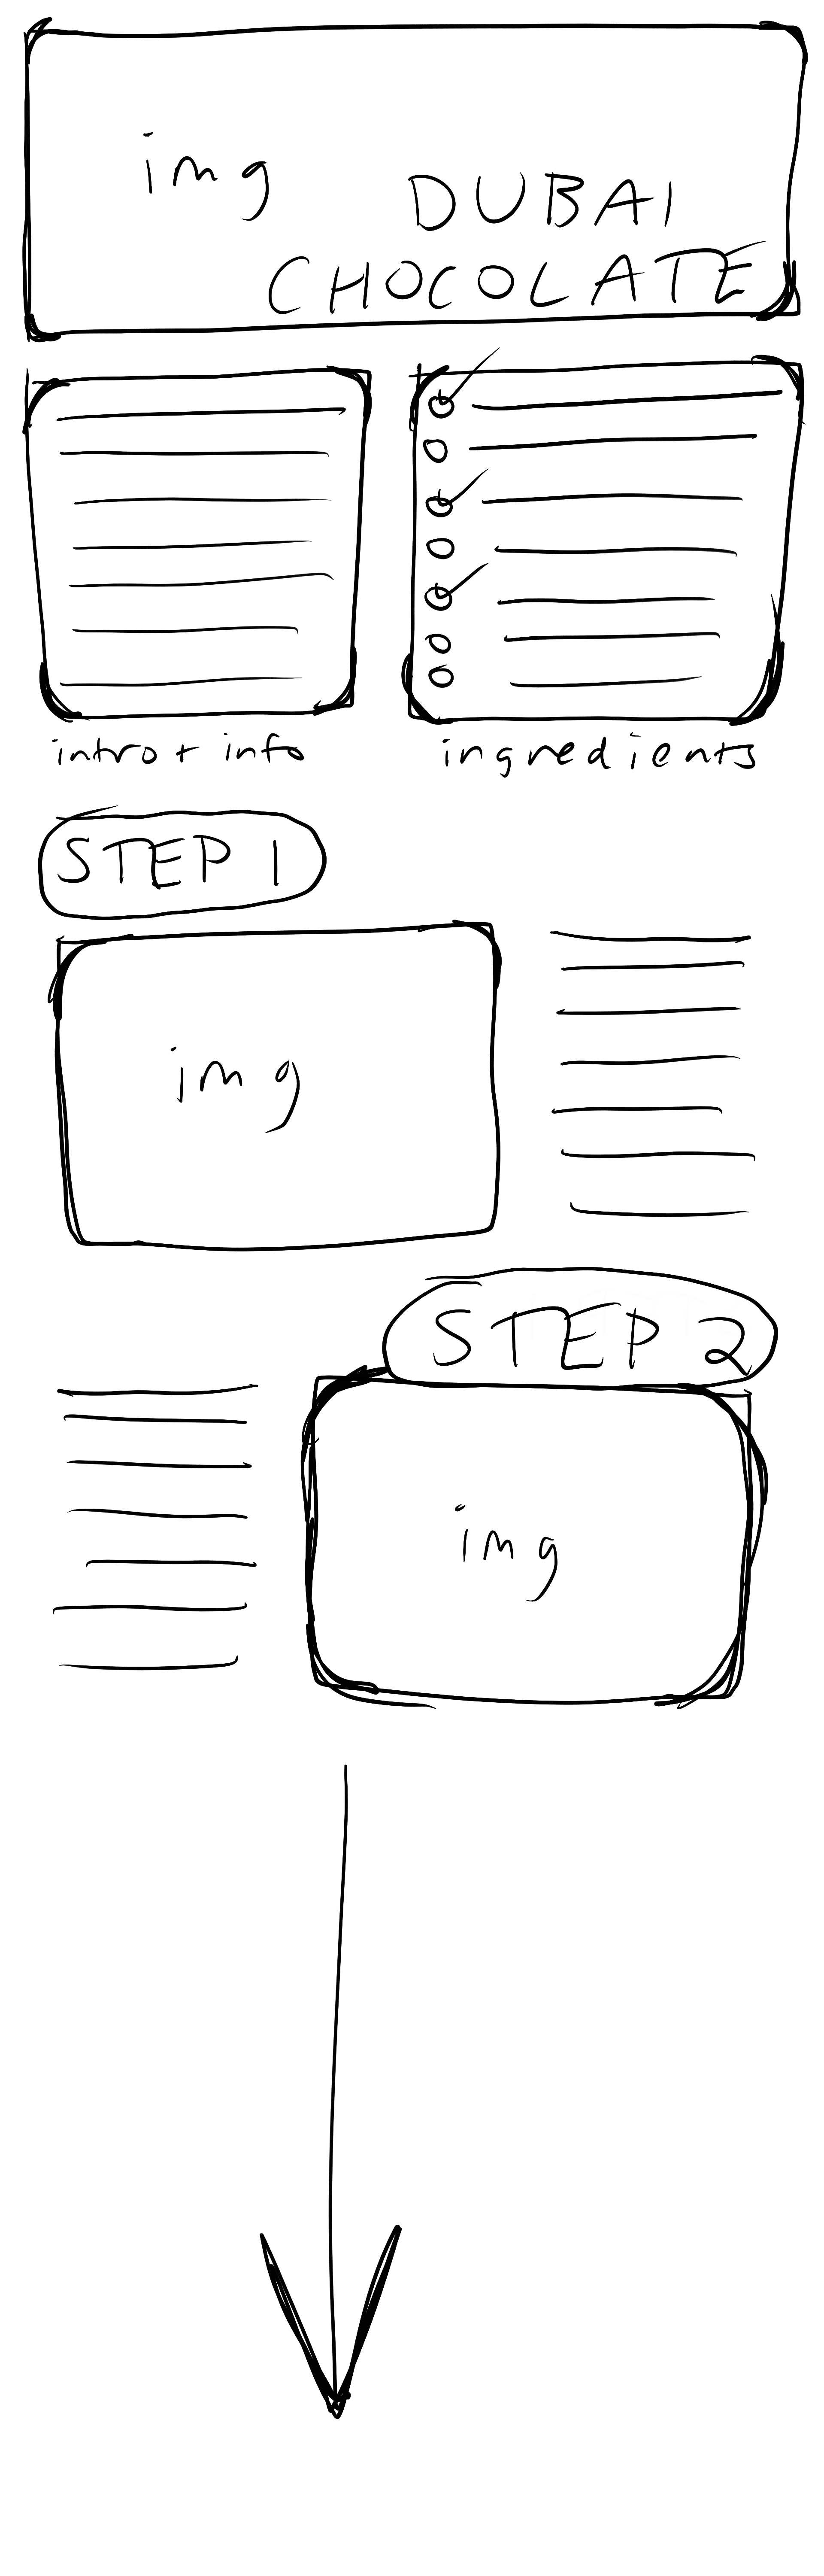 img
DUBAI
CHOCOLATE
intro + info
ingredients
STEP 1
img
STEP 2
img